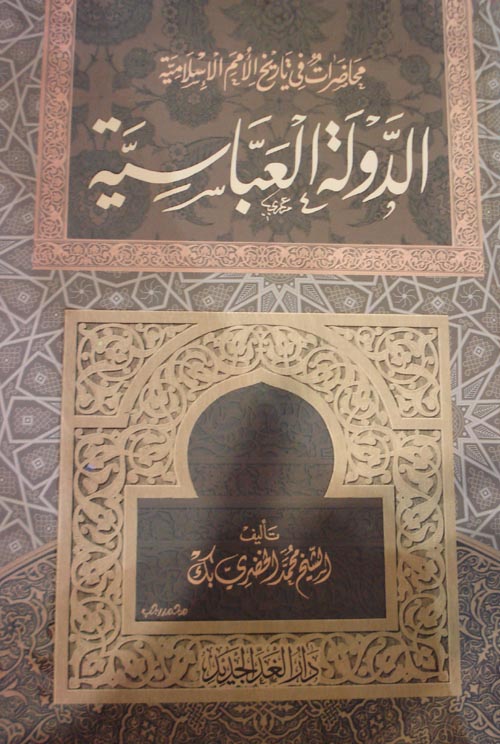 محاضرات في تاريخ الأمم الإسلامية
الدَّوْلَةُ الْعَبَّاسِيَّة
تأليف
الشيخ محمد الخضري بك
دار الغد الجديد